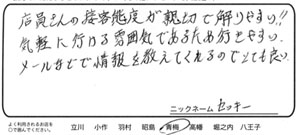 店員さんの接客態度が親切で解りやすい!!
気軽に行ける雰囲気であるため行きやすい。
メールなどで情報を教えてくれるのでとても良い
ニックネーム セッキー
よく利用されるお店を
○で囲んでください。
立川 小作 羽村 昭島 青梅 高幡 堀之内 八王子